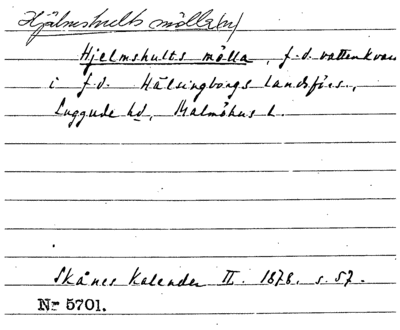 Hjälmshults mölla
Hjelmshults mölla, f.d. vattenkvarn
i f.d. Hälsingborgs landsförs.,
Luggude hd, Malmöhus l.
Skånes Kalender II. 1878. s. 57.
Nr 5701.